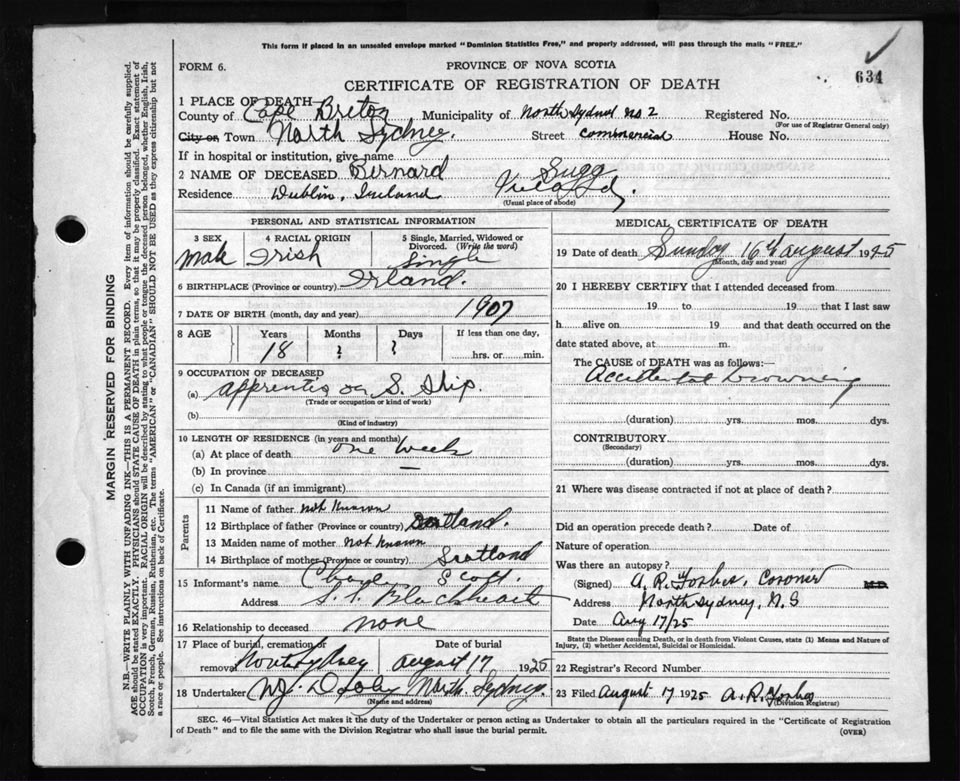 This form if placed in an unsealed envelope marked "Dominion Statistics Free," and properly addressed, will pass through the mails "FREE."
FORM 6.
PROVINCE OF NOVA SCOTIA
634
CERTIFICATE OF REGISTRATION OF DEATH
1 PLACE OF DEATH
County of Cape Breton Municipality of North Sydney no 2 Registered No.
(For use of Registrar General only)
City or Town North Sydney. Street commercial House No.
If in hospital or institution, give name
2 NAME OF DECEASED Bernard Sugg
Residence Dublin, Ireland
(Usual place of abode)
PERSONAL AND STATISTICAL INFORMATION
3 SEX
Male
4 RACIAL ORIGIN
Irish
5 Single, Married, Widowed or Divorced. (Write the word)
Single
6 BIRTHPLACE (Province or country) Irland.
7 DATE OF BIRTH (month, day and year) 1907
8 AGE Years Months Days If less than one day,
18 ? ? hrs. or min.
9 OCCUPATION OF DECEASED
(a) apprentis on S. Ship.
(Trade or occupation or kind of work)
(b)
(Kind of industry)
10 LENGTH OF RESIDENCE (in years and months)
(a) At place of death one Week
(b) In province —
(c) In Canada (if an immigrant)
Parents
11 Name of father not known
12 Birthplace of father (Province or country) Scotland.
13 Maiden name of mother not known
14 Birthplace of mother (Province or country) Scotland
15 Informant's name Scott.
Address S.S.
16 Relationship to deceased none
17 Place of burial, cremation or removal North Sydney
Date of burial
August 17 1925
18 Undertaker North Sydney.
(Name and address)
MEDICAL CERTIFICATE OF DEATH
19 Date of death Sunday 16th August 1925
(Month, day and year)
20 I HEREBY CERTIFY that I attended deceased from
19 to 19 that I last saw
h alive on 19 and that death occurred on the
date stated above, at m.
The CAUSE of DEATH was as follows:
Accidental Drowning
(duration) yrs. mos. dys.
CONTRIBUTORY
(Secondary)
(duration) yrs. mos. dys.
21 Where was disease contracted if not at place of death?
Did an operation precede death? Date of
Nature of operation
Was there an autopsy?
(Signed) A. R. Forbes, Coroner M.D.
Address North Sydney, N.S
Date Aug 17/25
State the Disease causing Death, or in death from Violent Causes, state (1) Means and Nature of Injury, (2) whether Accidental, Suicidal or Homicidal.
22 Registrar's Record Number
23 Filed August 17 1925 A. R. Forbes
(Division Registrar)
SEC. 46—Vital Statistics Act makes it the duty of the Undertaker or person acting as Undertaker to obtain all the particulars required in the "Certificate of Registration
of Death" and to file the same with the Division Registrar who shall issue the burial permit.
(OVER)
MARGIN RESERVED FOR BINDING
N.B.—WRITE PLAINLY WITH UNFADING INK—THIS IS A PERMANENT RECORD. Every item of information should be carefully supplied.
AGE should be stated EXACTLY. PHYSICIANS should STATE CAUSE OF DEATH in plain terms, so that it may be properly classified. Exact statement of
OCCUPATION is very important. RACIAL ORIGIN will be described by stating to what people or tongue the deceased person belonged, whether English, Irish,
Scotch, French, German, Russian, Ruthenian, etc. The terms "AMERICAN" or "CANADIAN" SHOULD NOT BE USED as they express citizenship but not
a race or people. See instructions on back of Certificate.